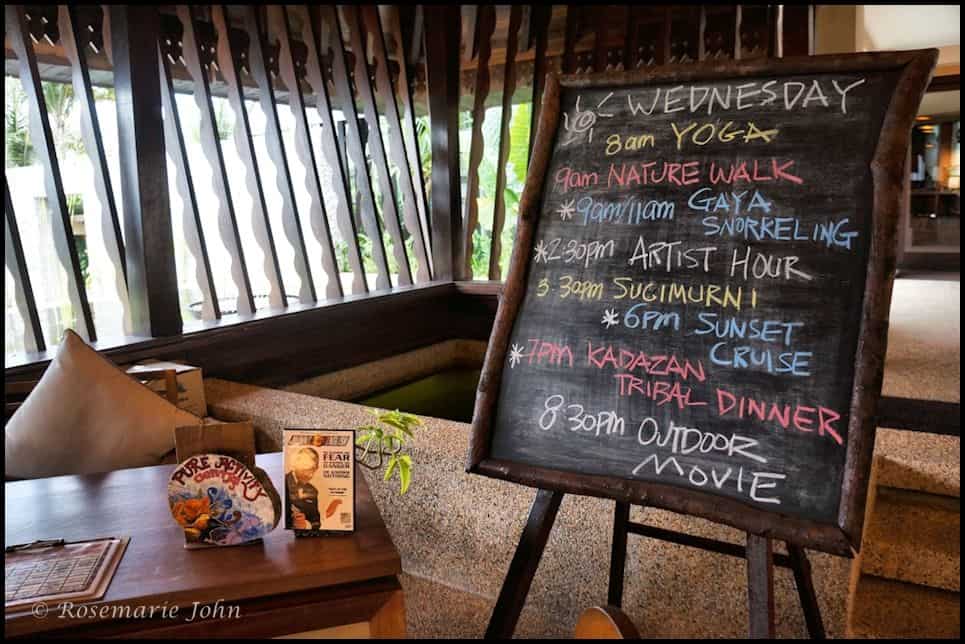 WEDNESDAY
8am YOGA
9am NATURE WALK
*9am/11am GAYA
SNORKELING
*2:30pm ARTIST HOUR
3.30pm SUGIMURNI
*6PM SUNSET
CRUISE
*7PM KADAZAN
TRIBAL DINNER
8:30PM OUTDOOR
MOVIE
PURE ACTIVITY
FEAR
© Rosemarie John